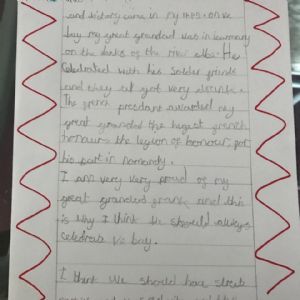 and history came in my 1995 on ve
day my great grandad was in Germany
on the banks of the river elbe. He
celedrated with his solder frinds
and they all got very drunk.
The french president awarded my
great grandad the higest french
honour the legion of honour for
his part in normandy.
I am very very proud of my
great grandad and this
is why I think We should always
celedrate ve bay.
I think We should have street